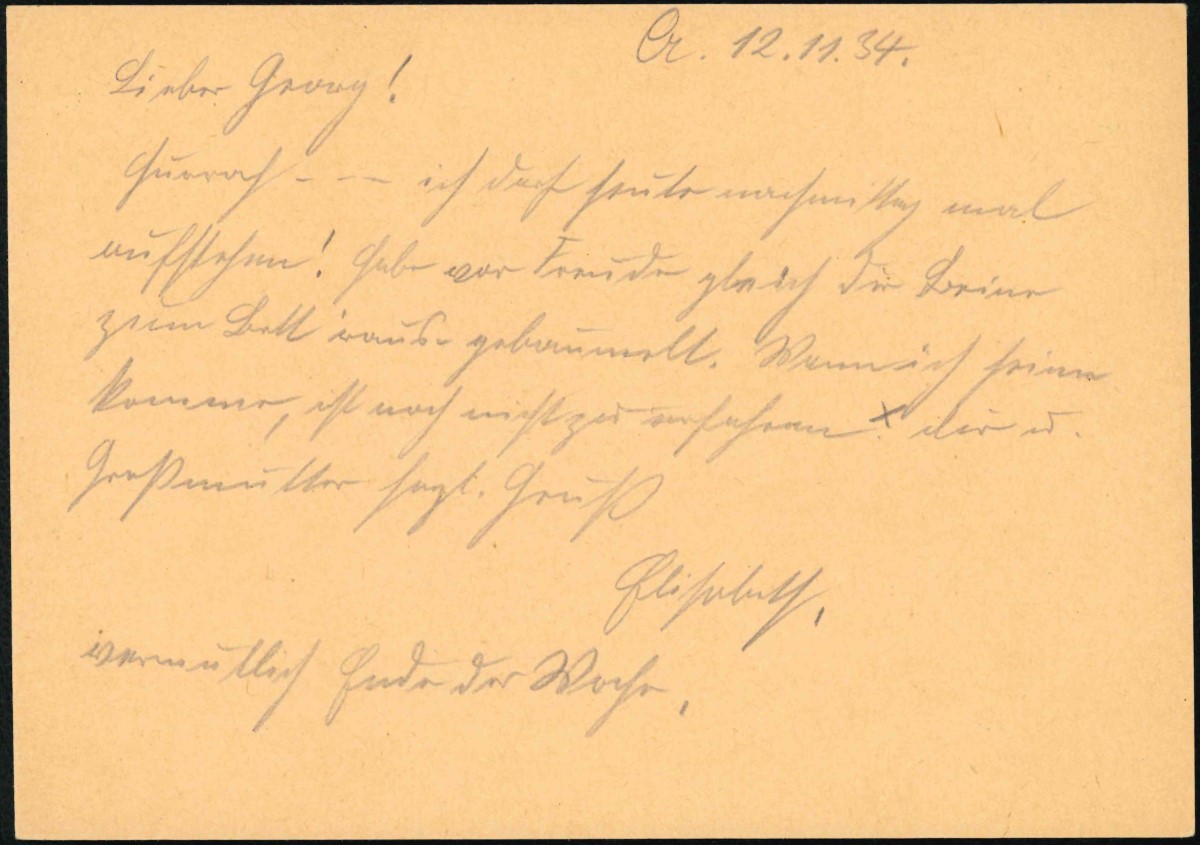 Cr. 12.11.34.
Lieber Georg!
Hurrah - - - ich darf heute nachmittag mal
aufstehen! Habe vor Freude gleich die Beine
zum Bett 'raus- gebaumelt. Wann ich heim
komme, ist noch nicht zu erfahren x. dir u.
Großmutter hzgl. Gruß
Elisabeth,
vermutlich Ende der Woche,